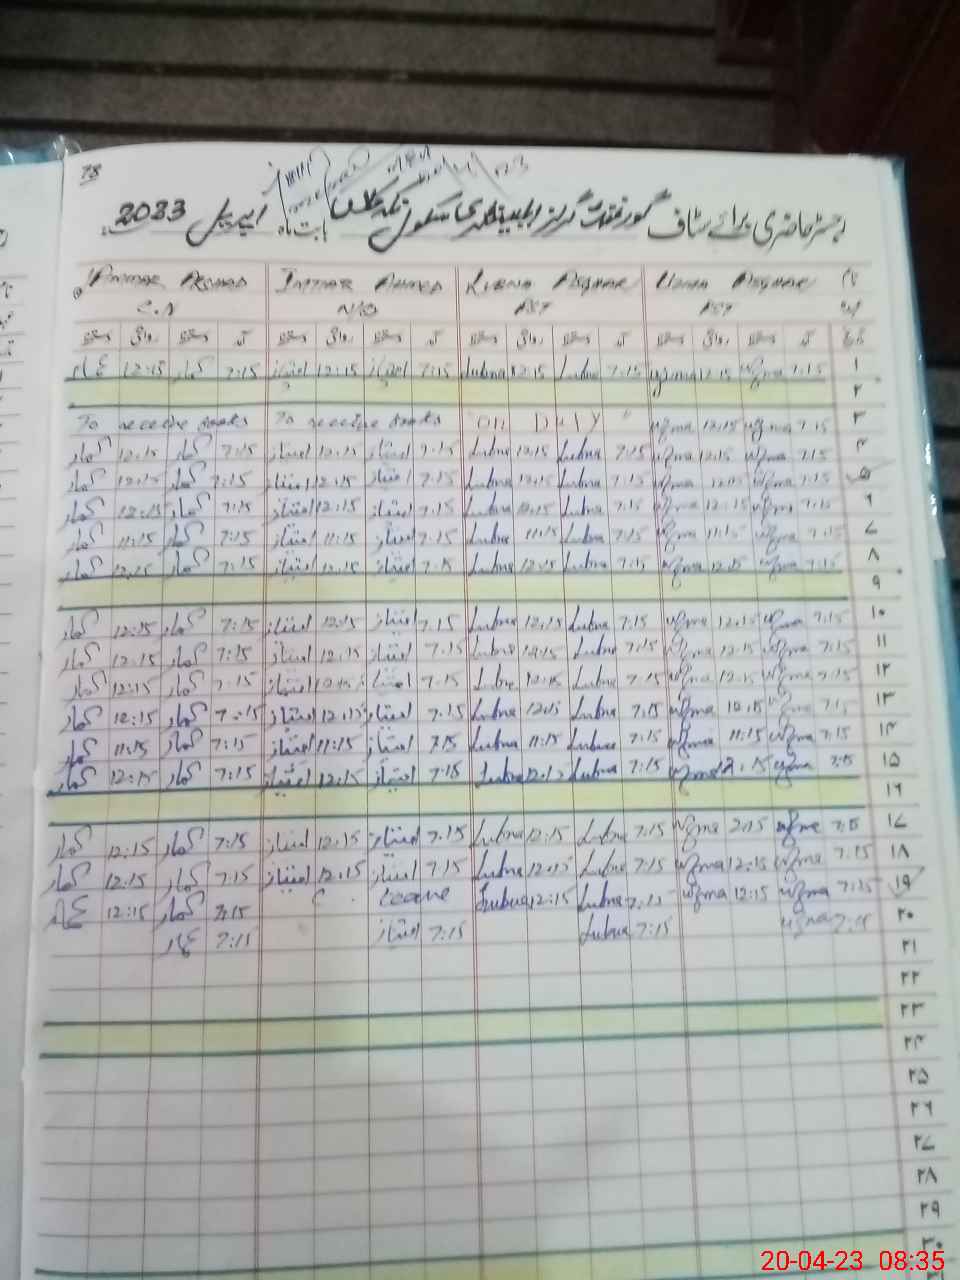 78
رجسٹر حاضری برائے سٹاف گورنمنٹ گرلز ایلیمنٹری سکول بابت ماہ اپریل 2023
نام Uzma Asghar Lubna Asghar Imtiaz Ahmed Ammar Arshad
عہدہ PST PST N/Q C.N
تاریخ آمد دستخط روانگی دستخط آمد دستخط روانگی دستخط آمد دستخط روانگی دستخط آمد دستخط روانگی دستخط
۱ 7:15 uzma 12:15 uzma 7:15 Lubna 12:15 Lubna 7:15 امتیاز 12:15 امتیاز 7:15 عمار 12:15 عمار
۲
۳ 7:15 uzma 12:15 uzma "on Duty" To receive books To receive books
۴ 7:15 uzma 12:15 uzma 7:15 Lubna 12:15 Lubna 7:15 امتیاز 12:15 امتیاز 7:15 عمار 12:15 عمار
۵ 7:15 uzma 12:15 uzma 7:15 Lubna 12:15 Lubna 7:15 امتیاز 12:15 امتیاز 7:15 عمار 12:15 عمار
۶ 7:15 uzma 12:15 uzma 7:15 Lubna 12:15 Lubna 7:15 امتیاز 12:15 امتیاز 7:15 عمار 12:15 عمار
۷ 7:15 uzma 11:15 uzma 7:15 Lubna 11:15 Lubna 7:15 امتیاز 11:15 امتیاز 7:15 عمار 11:15 عمار
۸ 7:15 uzma 12:15 uzma 7:15 Lubna 12:15 Lubna 7:15 امتیاز 12:15 امتیاز 7:15 عمار 12:15 عمار
۹
۱۰ 7:15 uzma 12:15 uzma 7:15 Lubna 12:15 Lubna 7:15 امتیاز 12:15 امتیاز 7:15 عمار 12:15 عمار
۱۱ 7:15 uzma 12:15 uzma 7:15 Lubna 12:15 Lubna 7:15 امتیاز 12:15 امتیاز 7:15 عمار 12:15 عمار
۱۲ 7:15 uzma 12:15 uzma 7:15 Lubna 12:15 Lubna 7:15 امتیاز 12:15 امتیاز 7:15 عمار 12:15 عمار
۱۳ 7:15 uzma 12:15 uzma 7:15 Lubna 12:15 Lubna 7:15 امتیاز 12:15 امتیاز 7:15 عمار 12:15 عمار
۱۴ 7:15 uzma 11:15 uzma 7:15 Lubna 11:15 Lubna 7:15 امتیاز 11:15 امتیاز 7:15 عمار 11:15 عمار
۱۵ 7:15 uzma 12:15 uzma 7:15 Lubna 12:15 Lubna 7:15 امتیاز 12:15 امتیاز 7:15 عمار 12:15 عمار
۱۶
۱۷ 7:15 uzma 2:15 uzma 7:15 Lubna 12:15 Lubna 7:15 امتیاز 12:15 امتیاز 7:15 عمار 12:15 عمار
۱۸ 7:15 uzma 12:15 uzma 7:15 Lubna 12:15 Lubna 7:15 امتیاز 12:15 امتیاز 7:15 عمار 12:15 عمار
۱۹ 7:15 uzma 12:15 uzma 7:15 Lubna 12:15 Lubna C. leave 7:15 عمار 12:15 عمار
۲۰ 7:15 uzma 7:15 Lubna 7:15 امتیاز 7:15 عمار
۲۱
۲۲
۲۳
۲۴
۲۵
۲۶
۲۷
۲۸
۲۹
۳۰
۳۱
20-04-23 08:35